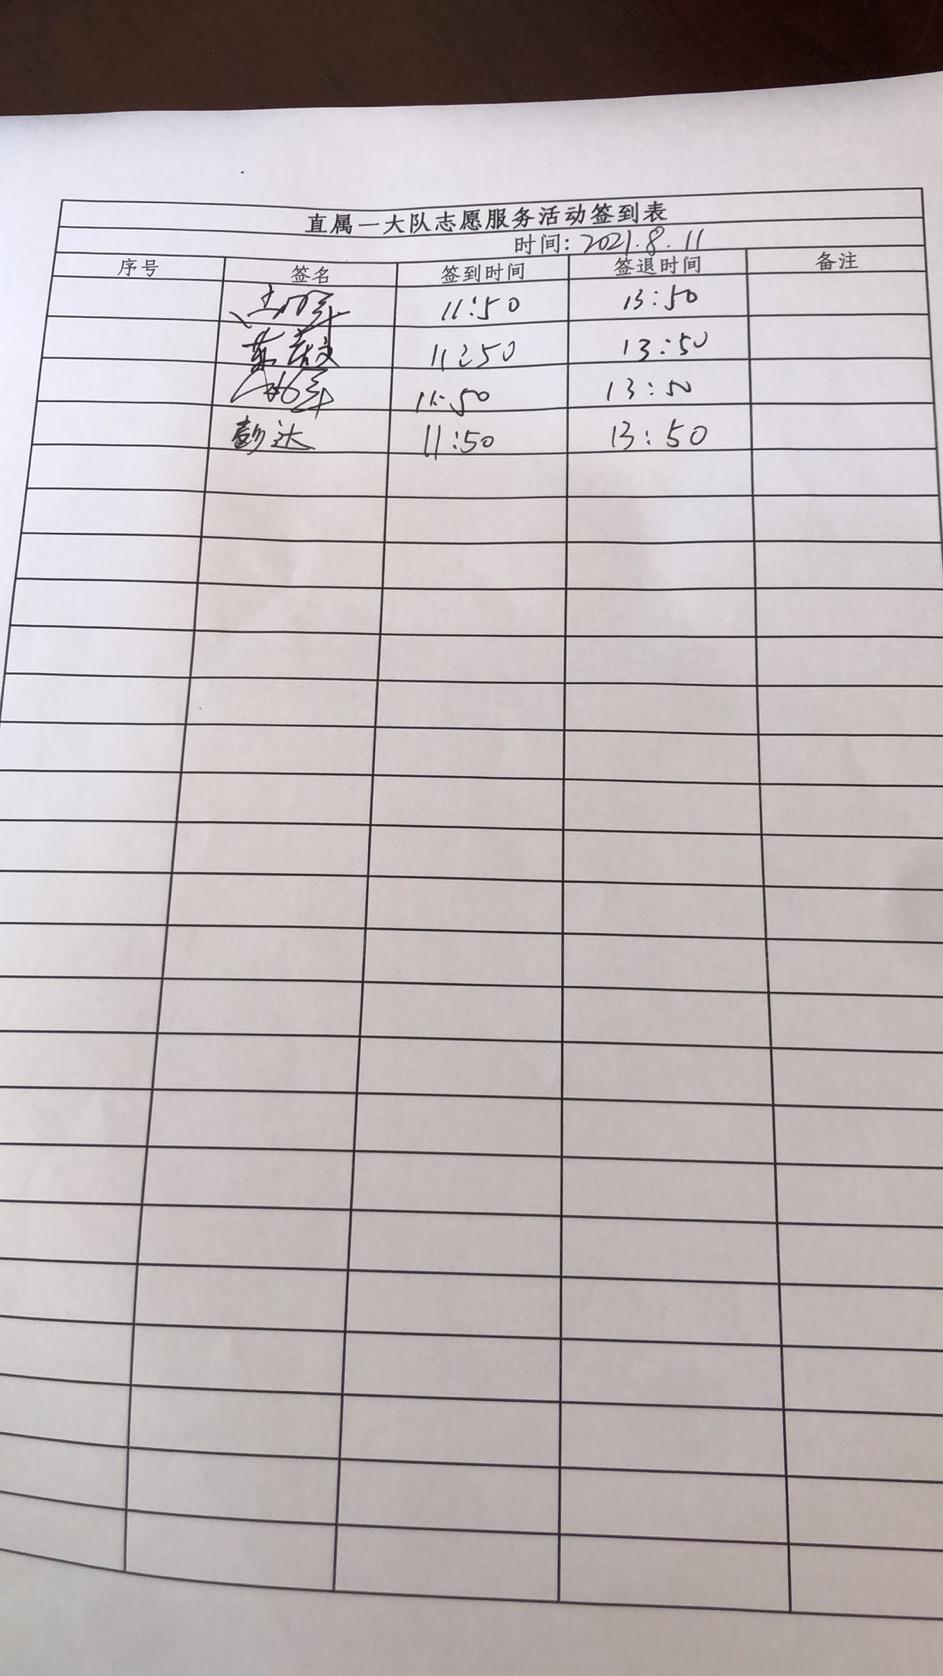 直属一大队志愿服务活动签到表
时间: 2021.8.11
序号 签名 签到时间 签退时间 备注
11:50 13:50
11:50 13:50
11:50 13:50
彭达 11:50 13:50